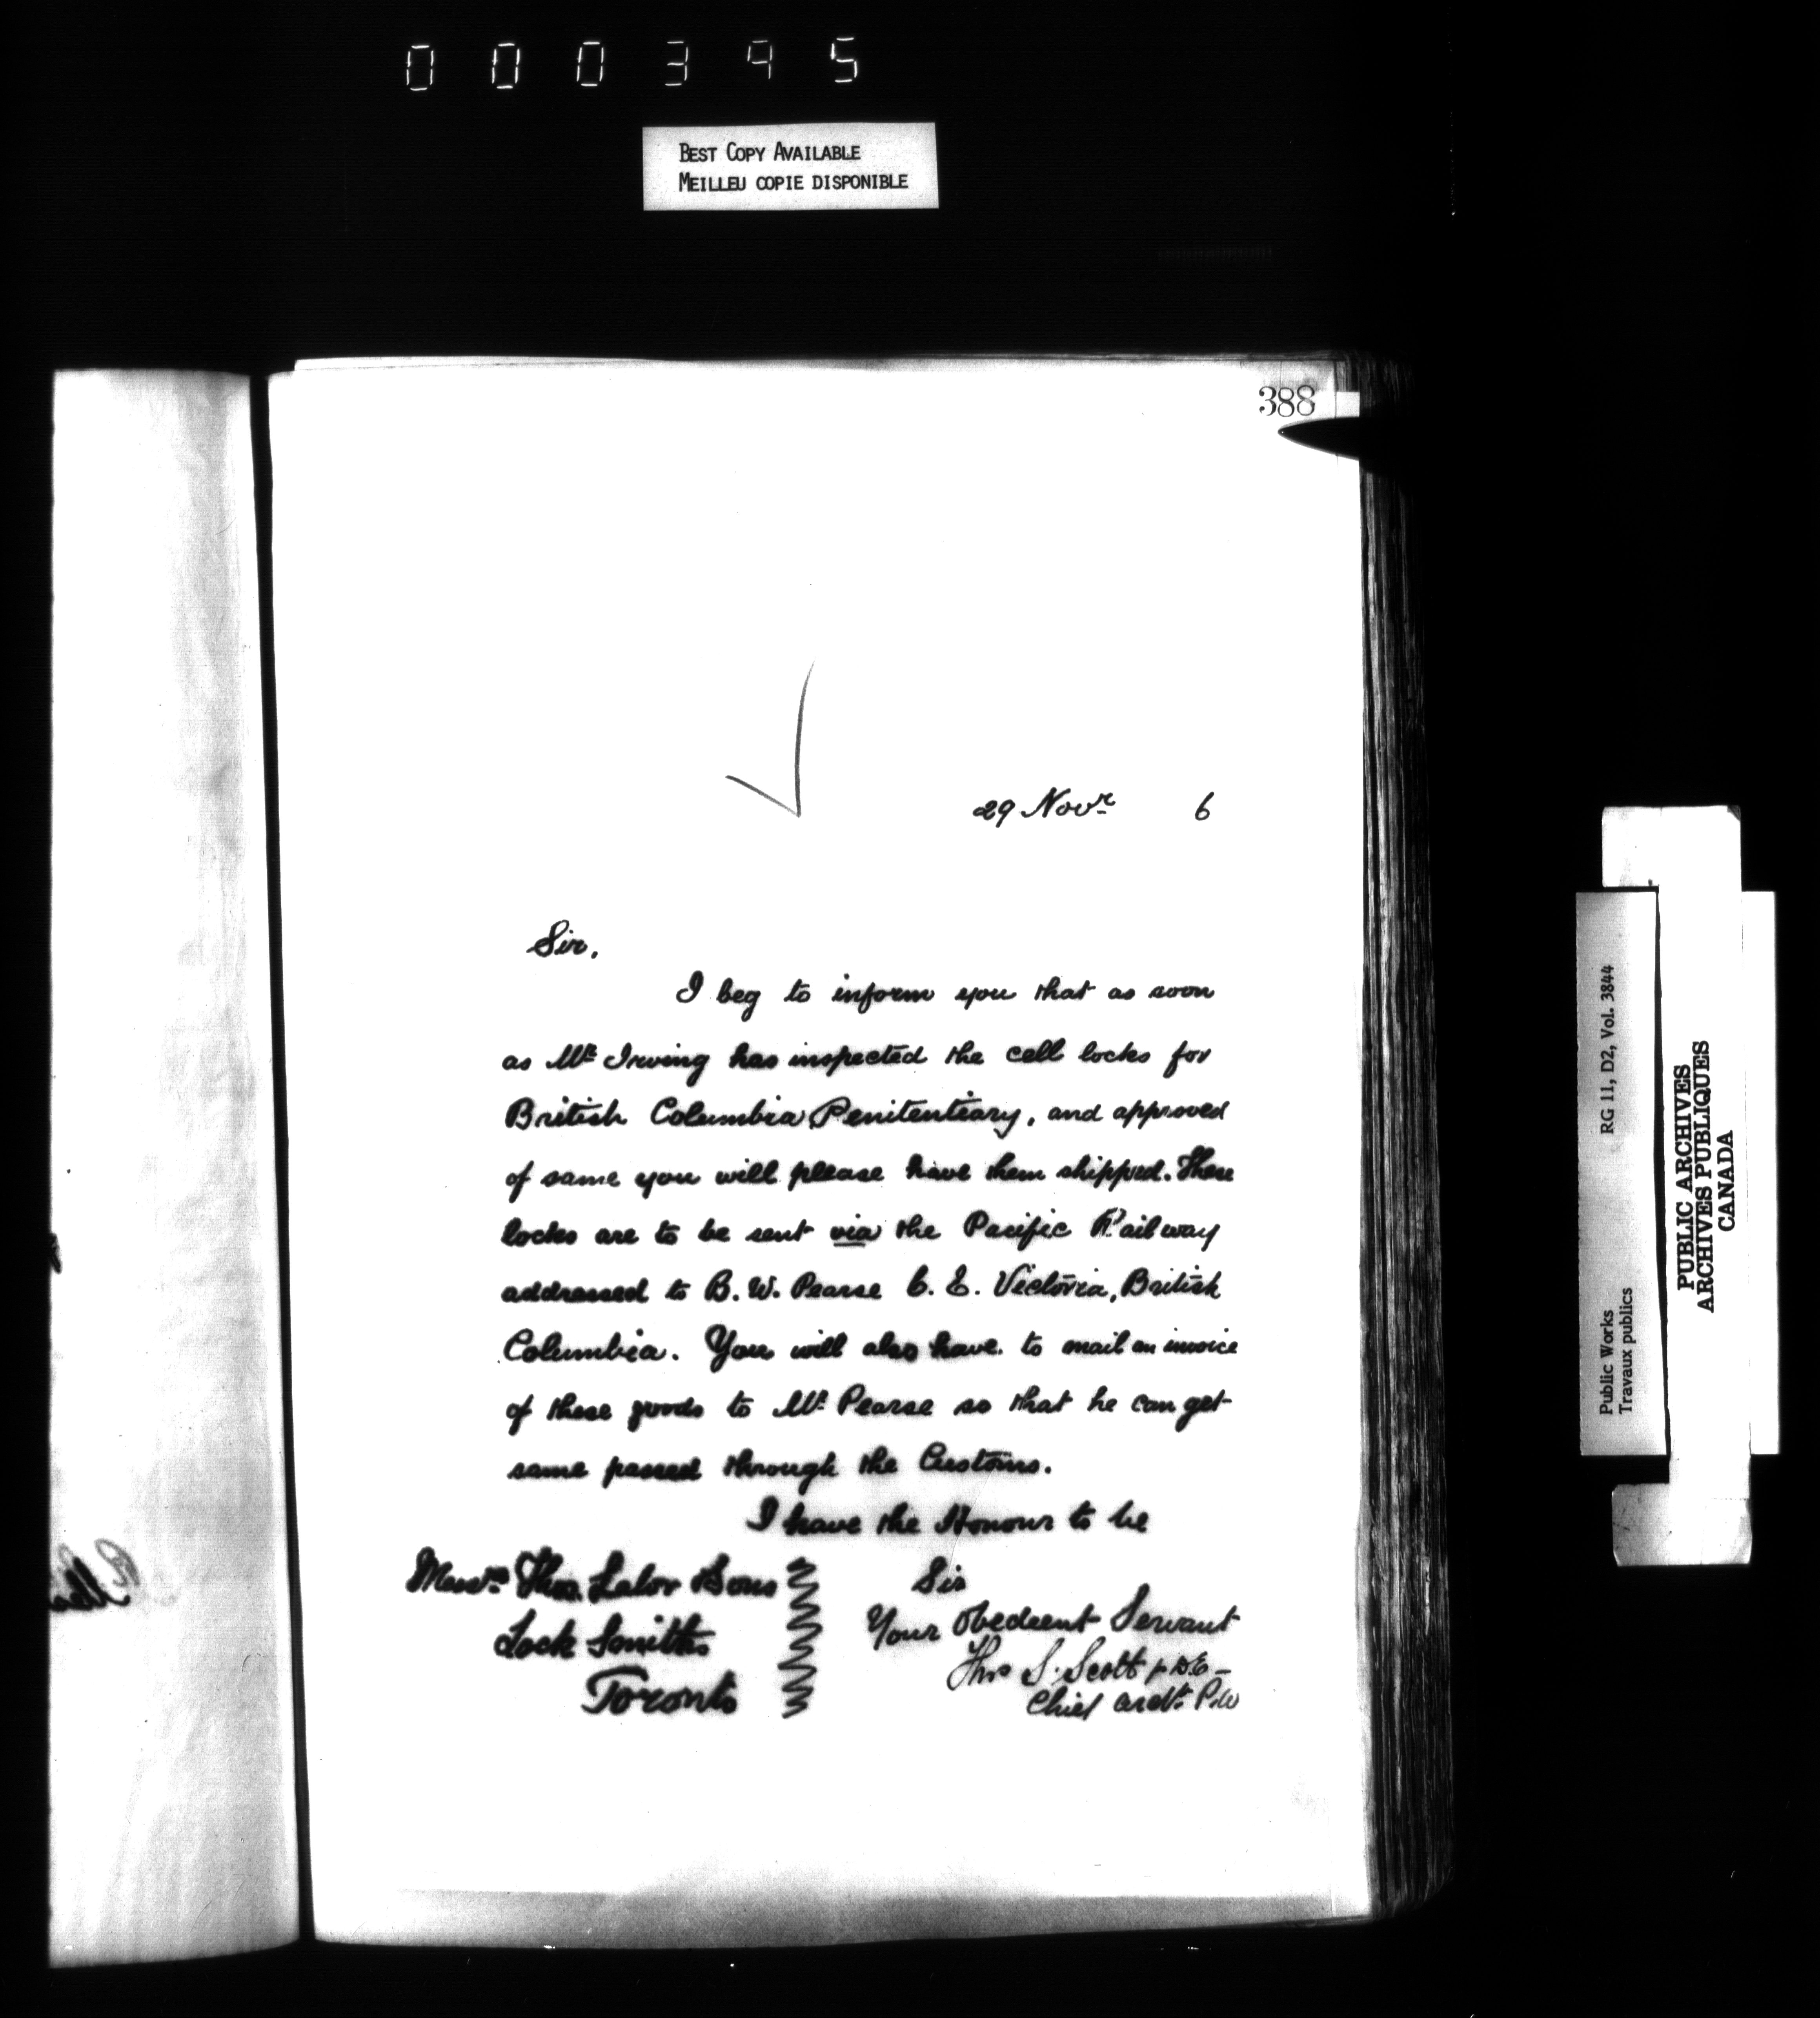 000395
BEST COPY AVAILABLE
MEILLEU COPIE DISPONIBLE
388
29 Novr 6
Sir,
I beg to inform you that as soon
as Mr Irving has inspected the cell locks for
British Columbia Penitentiary, and approved
of same you will please have them shipped. These
locks are to be sent via the Pacific Railway
addressed to B. W. Pearse C. E. Victoria, British
Columbia. You will also have to mail an invoice
of these goods to Mr Pearse so that he can get
same passed through the Customs.
I have the Honour to be
Sir
Your Obedient Servant
Thos S. Scott p D.E
Chief Archt. P.W
Messrs Thos. Lalor & Sons
Lock Smiths
Toronto
Public Works RG 11, D2, Vol. 3844
Travaux publics
PUBLIC ARCHIVES
ARCHIVES PUBLIQUES
CANADA